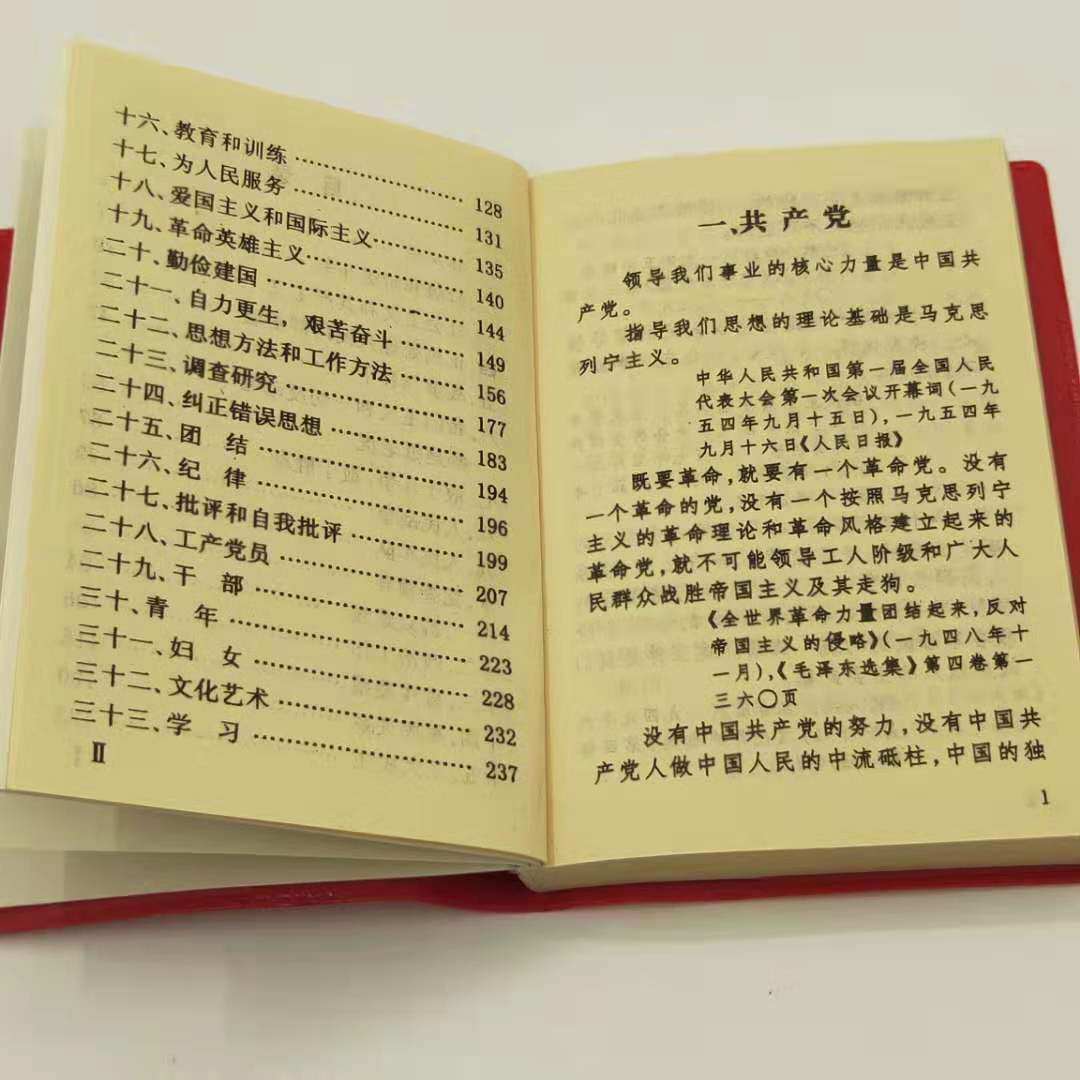 十六、教育和训练 …………… 128
十七、为人民服务 …………… 131
十八、爱国主义和国际主义 …………… 135
十九、革命英雄主义 …………… 140
二十、勤俭建国 …………… 144
二十一、自力更生，艰苦奋斗 …………… 149
二十二、思想方法和工作方法 …………… 156
二十三、调查研究 …………… 177
二十四、纠正错误思想 …………… 183
二十五、团 结 …………… 194
二十六、纪 律 …………… 196
二十七、批评和自我批评 …………… 199
二十八、工产党员 …………… 207
二十九、干 部 …………… 214
三十、青 年 …………… 223
三十一、妇 女 …………… 228
三十二、文化艺术 …………… 232
三十三、学 习 …………… 237
Ⅱ
一、共产党
领导我们事业的核心力量是中国共
产党。
指导我们思想的理论基础是马克思
列宁主义。
中华人民共和国第一届全国人民
代表大会第一次会议开幕词(一九
五四年九月十五日)，一九五四年
九月十六日《人民日报》
既要革命，就要有一个革命党。没有
一个革命的党，没有一个按照马克思列宁
主义的革命理论和革命风格建立起来的
革命党，就不可能领导工人阶级和广大人
民群众战胜帝国主义及其走狗。
《全世界革命力量团结起来，反对
帝国主义的侵略》(一九四八年十
一月)，《毛泽东选集》第四卷第一
三六〇页
没有中国共产党的努力，没有中国共
产党人做中国人民的中流砥柱，中国的独
1